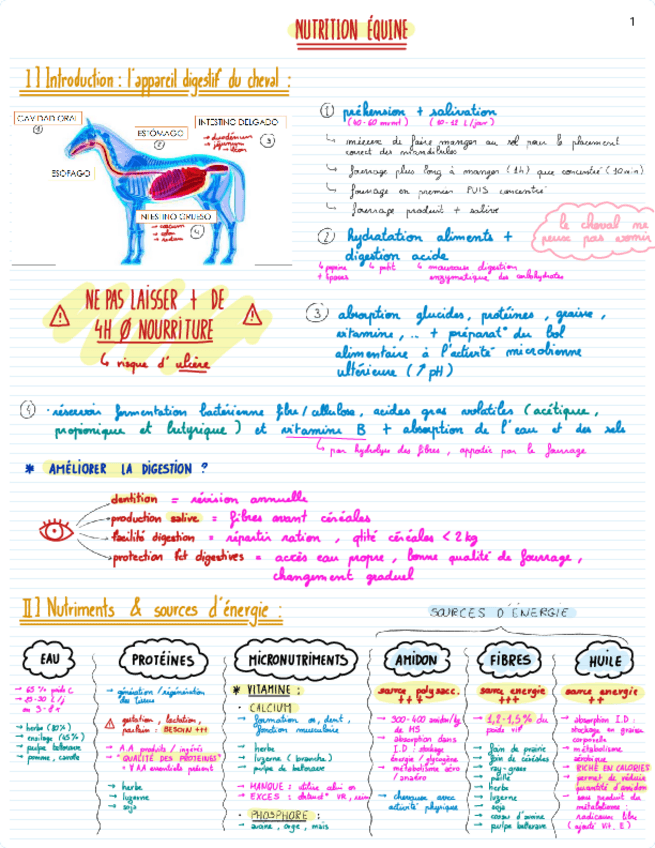 1
NUTRITION ÉQUINE
I] Introduction : l'appareil digestif du cheval :
CAVIDAD ORAL
①
ESTÓMAGO
②
INTESTINO DELGADO
→ duodénum
→ jéjunum
→ iléon
③
ESOFAGO
INTESTINO GRUESO
→ caecum
→ colon
→ rectum
④
① préhension + salivation
(40-60 mvmt) (10-12 L/jour)
↳ mieux de faire manger au sol pour le placement
correct des mandibules
↳ fourrage plus long à manger (1h) que concentré (10min)
↳ fourrage en premier PUIS concentré
↳ fourrage produit + salive
le cheval ne
peut pas vomir
② hydratation aliments +
digestion acide
↳ pepsine ↳ petit ↳ mauvaise digestion
+ lipases enzymatique des carbohydrates
NE PAS LAISSER + DE
4H Ø NOURRITURE
↳ risque d'ulcère
③ absorption glucides, protéines, graisse,
vitamine, .. + préparat° du bol
alimentaire à l'activité microbienne
ultérieure (↗ pH)
④ · réservoir fermentation bactérienne fibre/cellulose, acides gras volatiles (acétique,
propionique et butyrique) et vitamine B + absorption de l'eau et des sels
↳ par hydrolyse des fibres, apporté par le fourrage
* AMÉLIORER LA DIGESTION ?
dentition = révision annuelle
production salive = fibres avant céréales
facilité digestion = répartir ration, qtité céréales < 2 kg
protection fct digestives = accès eau propre, bonne qualité de fourrage,
changement graduel
II] Nutriments & sources d'énergie :
SOURCES D'ÉNERGIE
EAU
→ herbe (80%)
→ pulpe betterave
→ pomme, carotte
PROTÉINES
→ génération/régénération
des tissus
gestation, lactation,
poulain : BESOIN ++
→ A.A produits / ingérés
→ "QUALITÉ DES PROTÉINES"
→ herbe
→ luzerne
→ soja
MICRONUTRIMENTS
* VITAMINE :
· CALCIUM
→ formation os, dent,
fonction musculaire
→ herbe
→ luzerne (branche)
→ pulpe de betterave
→ MANQUE : utilise celui os
· PHOSPHORE :
→ avoine, orge, maïs
AMIDON
source polysacc.
++
→ absorption dans
I.D : stockage
énergie / glycogène
→ métabolisme aéro
/ anaéro
activité physique
FIBRES
source énergie
+++
→ 1,2-1,5% du
poids vif
→ foin de prairie
→ foin de céréales
→ ray-grass
→ paille
→ herbe
→ luzerne
→ soja
→ pulpe betterave
HUILE
source énergie
++
→ absorption I.D :
stockage en graisse
corporelle
→ métabolisme
aérobique
→ RICHE EN CALORIES
→ permet de réduire
quantité d'amidon
→ sous produit du
métabolisme :
radicaux libre
(ajouté Vit. E)